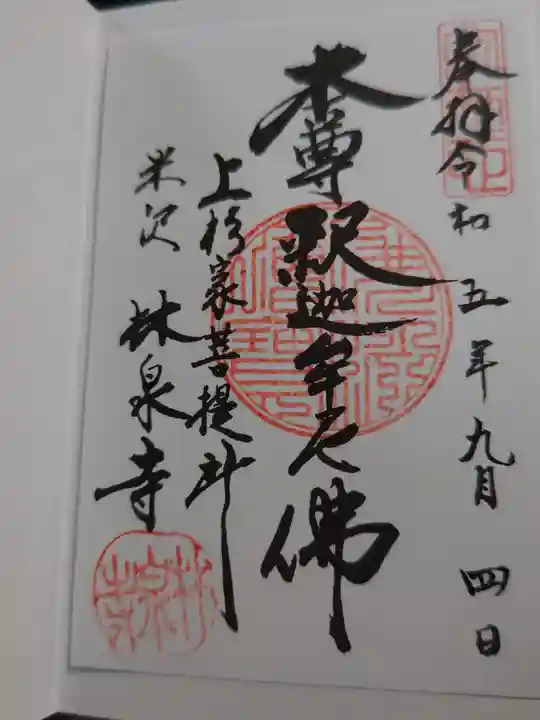 奉拝令和五年九月四日
本尊釈迦牟尼佛
上杉家菩提所
米沢林泉寺
林泉寺